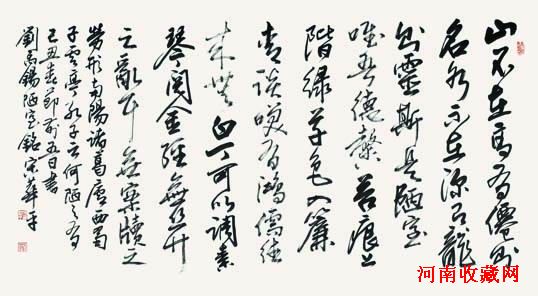 山不在高有僊則
名水不在深有龍
則靈斯是陋室
唯吾德馨苔痕上
階綠草色入簾
青談笑有鴻儒往
來無白丁可以調素
琴閱金經無絲竹
之亂耳無案牘之
勞形南陽諸葛廬西蜀
子雲亭孔子云何陋之有
己丑春節前五日書
劉禹錫陋室銘宋華平
河南收藏网